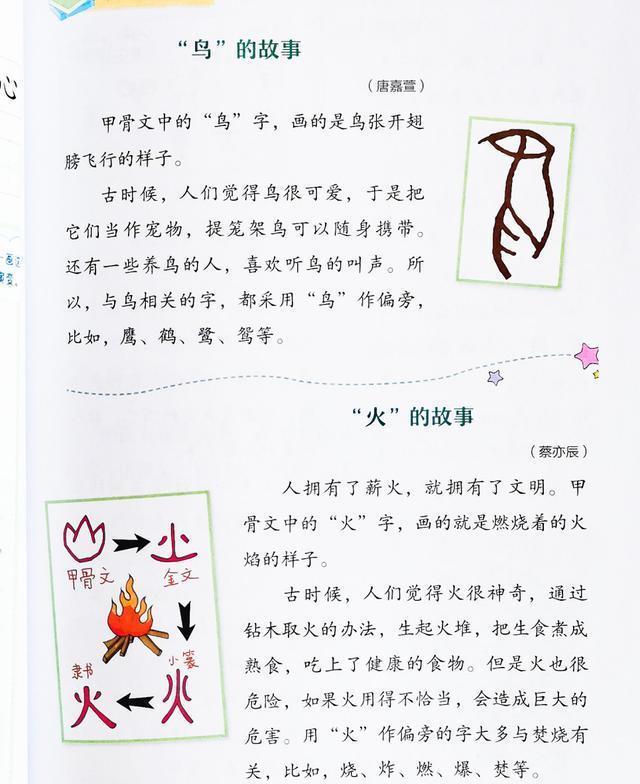 心
“鸟”的故事
（唐嘉萱）
甲骨文中的“鸟”字，画的是鸟张开翅
膀飞行的样子。
古时候，人们觉得鸟很可爱，于是把
它们当作宠物，提笼架鸟可以随身携带。
还有一些养鸟的人，喜欢听鸟的叫声。所
以，与鸟相关的字，都采用“鸟”作偏旁，
比如，鹰、鹤、鹭、鸳等。
“火”的故事
（蔡亦辰）
人拥有了薪火，就拥有了文明。甲
骨文中的“火”字，画的就是燃烧着的火
焰的样子。
古时候，人们觉得火很神奇，通过
钻木取火的办法，生起火堆，把生食煮成
熟食，吃上了健康的食物。但是火也很
危险，如果火用得不恰当，会造成巨大的
危害。用“火”作偏旁的字大多与焚烧有
关，比如，烧、炸、燃、爆、焚等。
甲骨文
金文
隶书
小篆
火